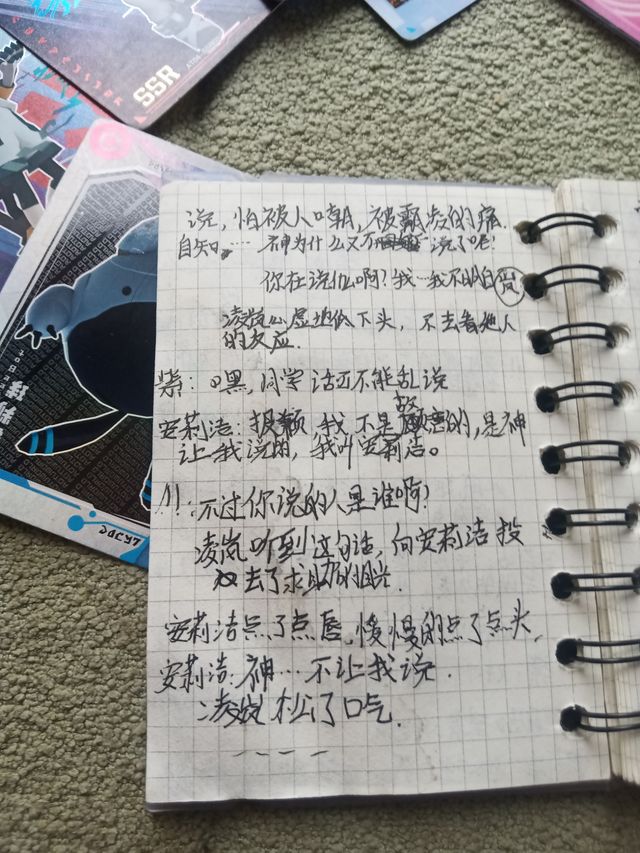 SSR
说，怕被人嘲，被飘发的痛
自知。… 神为什么又不 说了呢！
你在说什么啊？我…我不明白
凌岚心虚地低下头，不去看他人
的反应.
紫：嘿，同学话还不能乱说
安莉洁：抱歉 我不是故意的，是神
让我说的，我叫安莉洁。
不过你说的人是谁啊？
凌岚听到这句话，向安莉洁投
去了求助的目光.
安莉洁点了点唇，慢慢的点了点头，
安莉洁：神…不让我说.
凌岚松了口气.